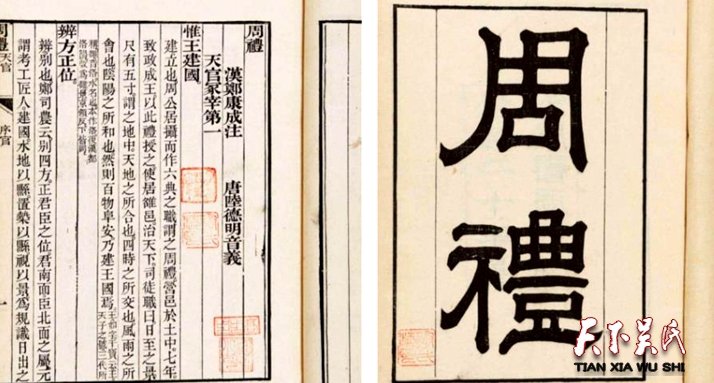 周禮
漢鄭康成注 唐陸德明音義
天官冢宰第一
惟王建國
建立也周公居攝而作六典之職謂之周禮營邑於土中七年
致政成王以此禮授之使居雒邑治天下司徒職曰日至之景
尺有五寸謂之地中天地之所合也四時之所交也風雨之所
會也陰陽之所和也然則百物阜安乃建王國焉
天子之號三代所
辨方正位
辨別也鄭司農云別四方正君臣之位君南面臣北面之屬元
謂考工匠人建國水地以縣置槷以縣視以景爲規識日出之
周禮
天官
序官
一
周禮
天下吴氏
TIAN XIA WU SHI